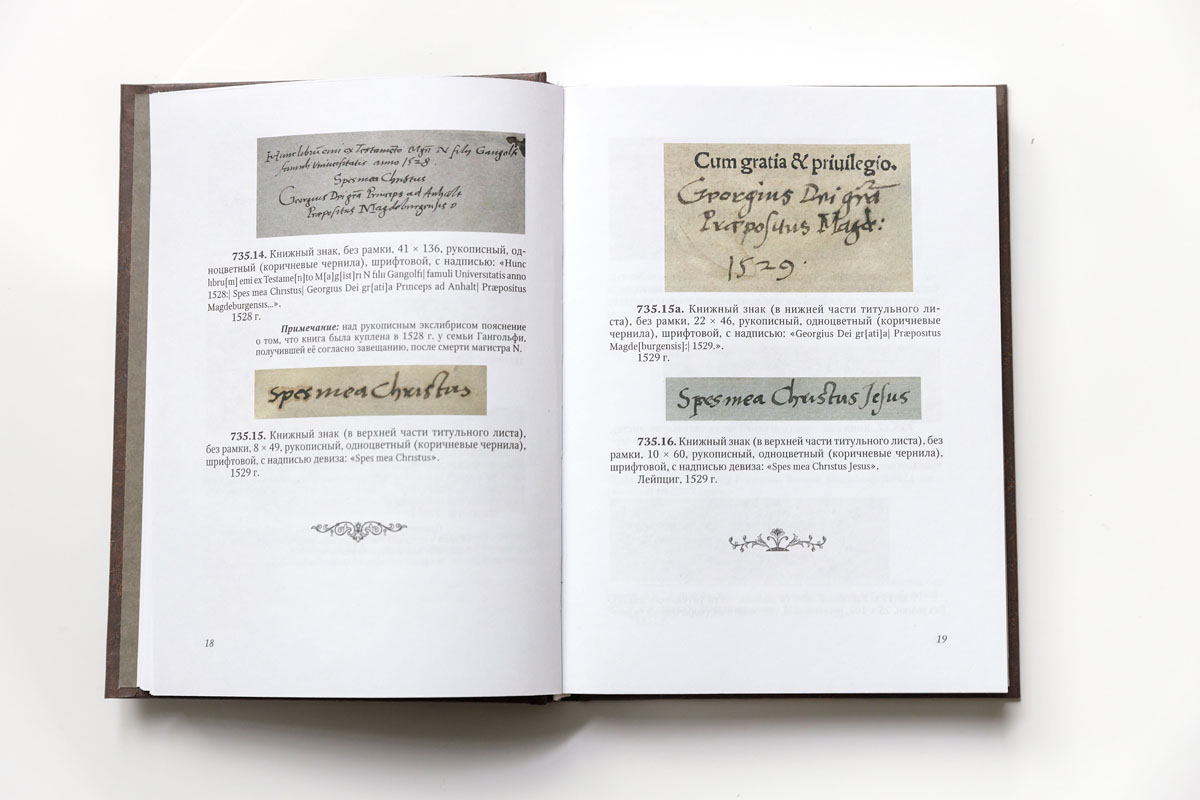 Hunc librū emi ex Testamēto Mgrī N filij Gangolfi
famuli Universitatis anno 1528.
Spes mea Christus
Georgius Dei grā Princeps ad Anhalt
Præpositus Magdeburgensis
735.14. Книжный знак, без рамки, 41 × 136, рукописный, од-
ноцветный (коричневые чернила), шрифтовой, с надписью: «Hunc
libru[m] emi ex Testame[n]to M[a]g[ist]ri N filii Gangolfi| famuli Universitatis anno
1528:| Spes mea Christus| Georgius Dei gr[ati]a Princeps ad Anhalt| Præpositus
Magdeburgensis...».
1528 г.
Примечание: над рукописным экслибрисом пояснение
о том, что книга была куплена в 1528 г. у семьи Гангольфи,
получившей её согласно завещанию, после смерти магистра N.
Spes mea Christus
735.15. Книжный знак (в верхней части титульного листа),
без рамки, 8 × 49, рукописный, одноцветный (коричневые чернила),
шрифтовой, с надписью девиза: «Spes mea Christus».
1529 г.
18
Cum gratia & priuilegio.
Georgius Dei grā
Præpositus Magde:
1529.
735.15а. Книжный знак (в нижней части титульного ли-
ста), без рамки, 22 × 46, рукописный, одноцветный (коричневые
чернила), шрифтовой, с надписью: «Georgius Dei gr[ati]a| Præpositus
Magde[burgensis]:| 1529.».
1529 г.
Spes mea Christus Jesus
735.16. Книжный знак (в верхней части титульного листа), без
рамки, 10 × 60, рукописный, одноцветный (коричневые чернила),
шрифтовой, с надписью девиза: «Spes mea Christus Jesus».
Лейпциг, 1529 г.
19